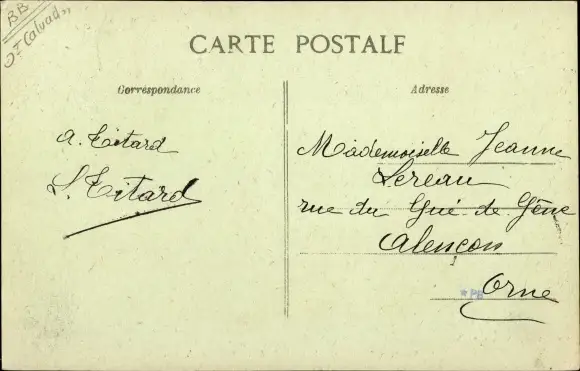 BB
Calvad
CARTE POSTALE
Correspondance
Adresse
A. Titard
S. Titard
Mademoiselle Jeanne
Lereau
rue du Gué de Gêne
Alençon
Orne
*PB